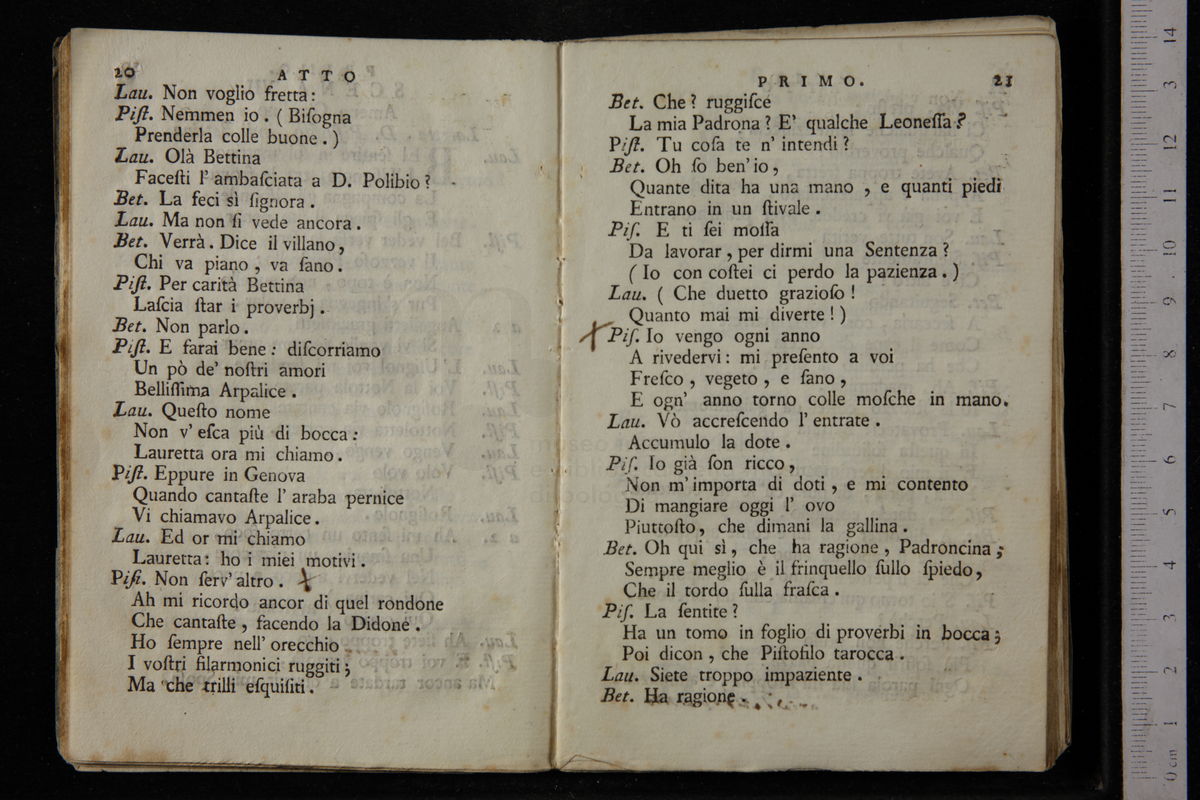 20 ATTO
Lau. Non voglio fretta:
Piſt. Nemmen io. (Biſogna
Prenderla colle buone.)
Lau. Olà Bettina
Faceſti l' ambaſciata a D. Polibio?
Bet. La feci sì ſignora.
Lau. Ma non ſi vede ancora.
Bet. Verrà. Dice il villano,
Chi va piano, va ſano.
Piſt. Per carità Bettina
Laſcia ſtar i proverbj.
Bet. Non parlo.
Piſt. E farai bene: diſcorriamo
Un pò de' noſtri amori
Belliſſima Arpalice.
Lau. Queſto nome
Non v' eſca più di bocca:
Lauretta ora mi chiamo.
Piſt. Eppure in Genova
Quando cantaſte l' araba pernice
Vi chiamavo Arpalice.
Lau. Ed or mi chiamo
Lauretta: ho i miei motivi.
Piſt. Non ſerv' altro.
Ah mi ricordo ancor di quel rondone
Che cantaſte, facendo la Didone.
Ho ſempre nell' orecchio
I voſtri filarmonici ruggiti;
Ma che trilli eſquiſiti.
PRIMO. 21
Bet. Che? ruggiſce
La mia Padrona? E' qualche Leoneſſa?
Piſt. Tu coſa te n' intendi?
Bet. Oh ſo ben' io,
Quante dita ha una mano, e quanti piedi
Entrano in un ſtivale.
Piſ. E ti ſei moſſa
Da lavorar, per dirmi una Sentenza?
(Io con coſtei ci perdo la pazienza.)
Lau. (Che duetto grazioſo!
Quanto mai mi diverte!)
Piſ. Io vengo ogni anno
A rivedervi: mi preſento a voi
Freſco, vegeto, e ſano,
E ogn' anno torno colle moſche in mano.
Lau. Vò accreſcendo l' entrate.
Accumulo la dote.
Piſ. Io già ſon ricco,
Non m' importa di doti, e mi contento
Di mangiare oggi l' ovo
Piuttoſto, che dimani la gallina.
Bet. Oh qui sì, che ha ragione, Padroncina;
Sempre meglio è il frinquello ſullo ſpiedo,
Che il tordo ſulla fraſca.
Piſ. La ſentite?
Ha un tomo in foglio di proverbi in bocca;
Poi dicon, che Piſtofilo tarocca.
Lau. Siete troppo impaziente.
Bet. Ha ragione.
0 cm 1 2 3 4 5 6 7 8 9 10 11 12 13 14